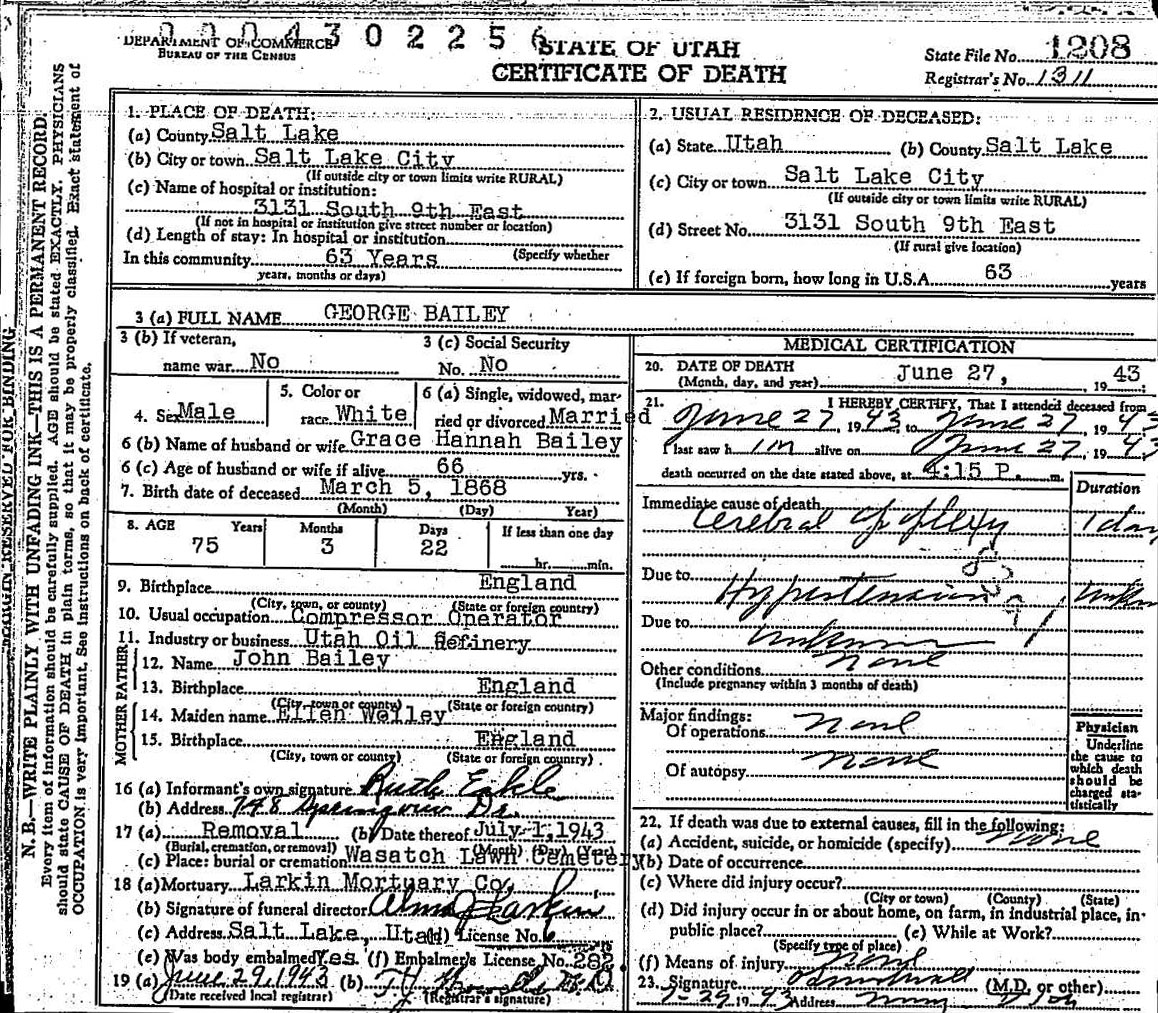 0004302256
DEPARTMENT OF COMMERCE
BUREAU OF THE CENSUS
STATE OF UTAH
CERTIFICATE OF DEATH
State File No. 1208
Registrar's No. 1311
MARGIN RESERVED FOR BINDING
N. B.—WRITE PLAINLY WITH UNFADING INK—THIS IS A PERMANENT RECORD.
Every item of information should be carefully supplied. AGE should be stated EXACTLY. PHYSICIANS
should state CAUSE OF DEATH in plain terms, so that it may be properly classified. Exact statement of
OCCUPATION is very important. See instructions on back of certificate.
1. PLACE OF DEATH:
(a) County Salt Lake
(b) City or town Salt Lake City
(If outside city or town limits write RURAL)
(c) Name of hospital or institution:
3131 South 9th East
(If not in hospital or institution give street number or location)
(d) Length of stay: In hospital or institution
(Specify whether
In this community 63 Years
years, months or days)
2. USUAL RESIDENCE OF DECEASED:
(a) State Utah (b) County Salt Lake
(c) City or town Salt Lake City
(If outside city or town limits write RURAL)
(d) Street No. 3131 South 9th East
(If rural give location)
(e) If foreign born, how long in U.S.A 63 years
3 (a) FULL NAME GEORGE BAILEY
3 (b) If veteran,
name war No
3 (c) Social Security
No. No
4. Sex Male
5. Color or
race White
6 (a) Single, widowed, mar-
ried or divorced Married
6 (b) Name of husband or wife Grace Hannah Bailey
6 (c) Age of husband or wife if alive 66 yrs.
7. Birth date of deceased March 5, 1868
(Month) (Day) Year)
8. AGE Years Months Days If less than one day
75 3 22 hr. min.
9. Birthplace England
(City, town, or county) (State or foreign country)
10. Usual occupation Compressor Operator
11. Industry or business Utah Oil Refinery
FATHER
12. Name John Bailey
13. Birthplace England
(City, town or county) (State or foreign country)
MOTHER
14. Maiden name Ellen Wolley
15. Birthplace England
(City, town or county) (State or foreign country)
16 (a) Informant's own signature Ruth Eakle
(b) Address 748 Springview Dr.
17 (a) Removal (b) Date thereof July 1, 1943
(Burial, cremation, or removal) (Month) (Day) (Year)
(c) Place: burial or cremation Wasatch Lawn Cemetery
18 (a) Mortuary Larkin Mortuary Co.
(b) Signature of funeral director Alma J Larkin
(c) Address Salt Lake, Utah (d) License No. 6
(e) Was body embalmed Yes (f) Embalmer's License No. 282.
19 (a) June 29, 1943 (b)
(Date received local registrar) (Registrar's signature)
MEDICAL CERTIFICATION
20. DATE OF DEATH
(Month, day, and year) June 27, 1943
21. I HEREBY CERTIFY, That I attended deceased from
June 27, 1943, to June 27, 1943
I last saw him alive on June 27, 1943
death occurred on the date stated above, at 4:15 P. m.
Duration
Immediate cause of death
Cerebral apoplexy 1 day
Due to Hypertension
Due to Unknown
Other conditions None
(Include pregnancy within 3 months of death)
Major findings:
Of operations None
Of autopsy None
Physician
Underline
the cause to
which death
should be
charged sta-
tistically
22. If death was due to external causes, fill in the following:
(a) Accident, suicide, or homicide (specify) None
(b) Date of occurrence
(c) Where did injury occur?
(City or town) (County) (State)
(d) Did injury occur in or about home, on farm, in industrial place, in
public place? (e) While at Work?
(Specify type of place)
(f) Means of injury None
23. Signature (M.D. or other)
29, 1943 Address